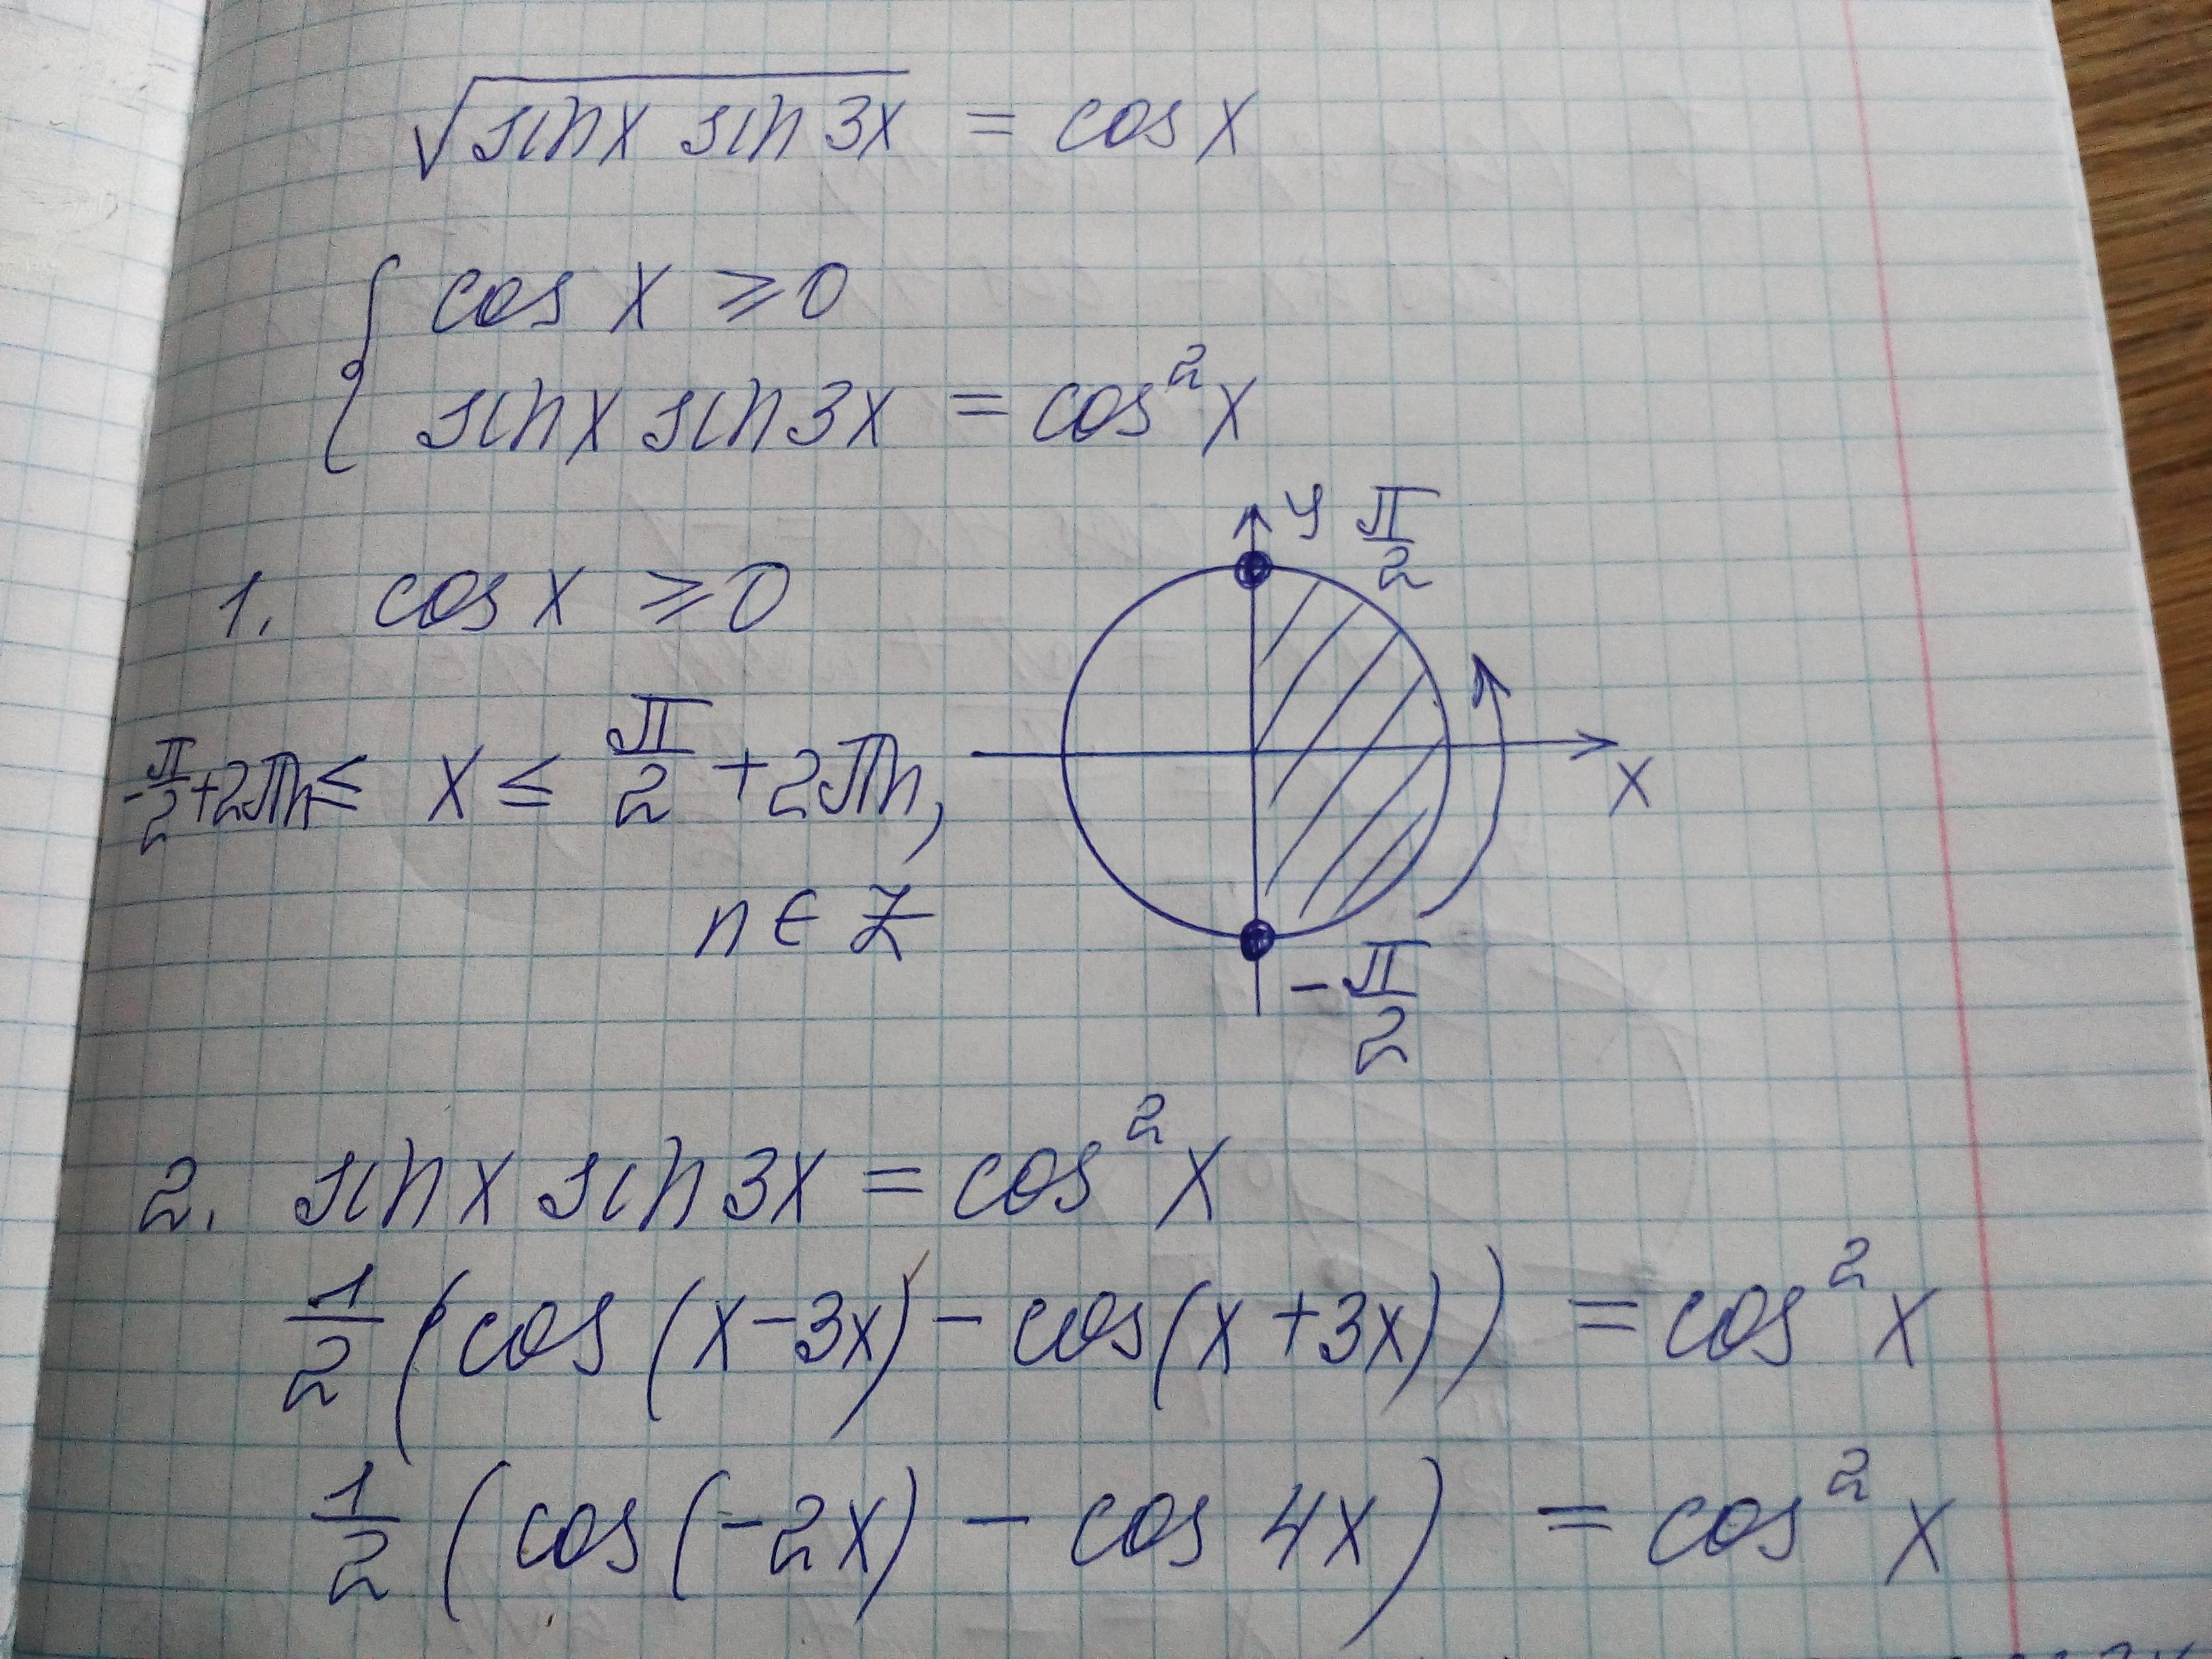 √(sin x sin 3x) = cos x
{ cos x ⩾ 0
sin x sin 3x = cos² x
1. cos x ⩾ 0
y π/2
-π/2 + 2πn ≤ x ≤ π/2 + 2πn,
x
n ∈ Z
-π/2
2. sin x sin 3x = cos² x
1/2 (cos (x - 3x) - cos (x + 3x)) = cos² x
1/2 (cos (-2x) - cos 4x) = cos² x